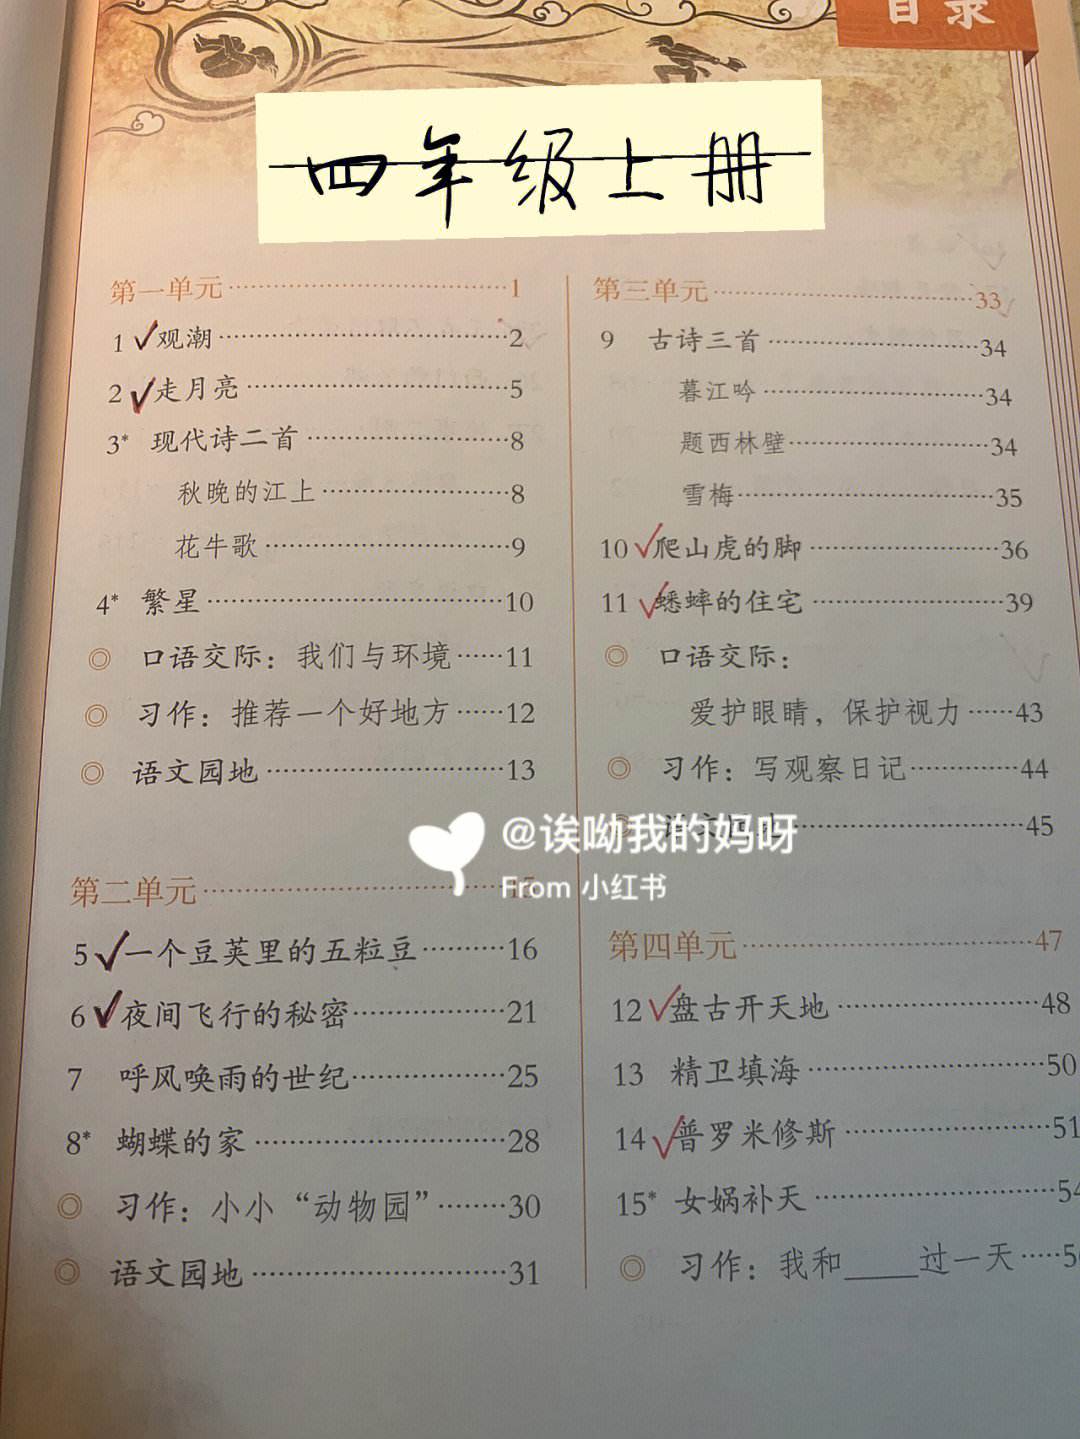 目录
四年级上册
第一单元……1
1 观潮……2
2 走月亮……5
3* 现代诗二首……8
秋晚的江上……8
花牛歌……9
4* 繁星……10
◎ 口语交际：我们与环境……11
◎ 习作：推荐一个好地方……12
◎ 语文园地……13
第二单元……15
5 一个豆荚里的五粒豆……16
6 夜间飞行的秘密……21
7 呼风唤雨的世纪……25
8* 蝴蝶的家……28
◎ 习作：小小“动物园”……30
◎ 语文园地……31
第三单元……33
9 古诗三首……34
暮江吟……34
题西林壁……34
雪梅……35
10 爬山虎的脚……36
11 蟋蟀的住宅……39
◎ 口语交际：
爱护眼睛，保护视力……43
◎ 习作：写观察日记……44
……45
@诶呦我的妈呀
From 小红书
第四单元……47
12 盘古开天地……48
13 精卫填海……50
14 普罗米修斯……51
15* 女娲补天……54
◎ 习作：我和____过一天……5